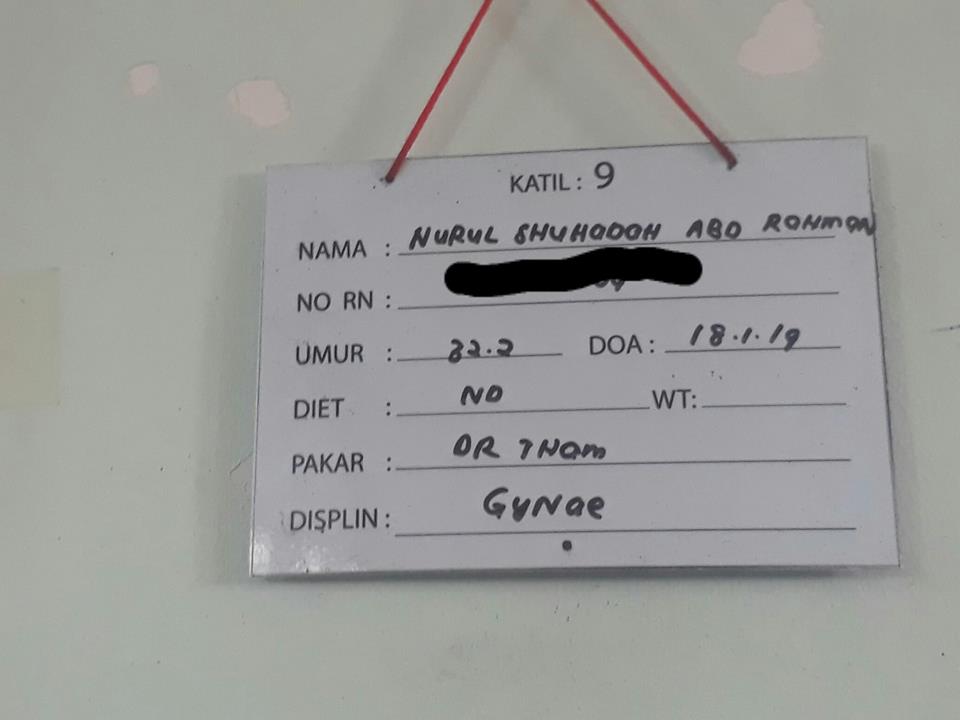 KATIL : 9
NAMA : NURUL SHUHADAH ABD RAHMAN
NO RN :
UMUR : 32.2 DOA : 18.1.19
DIET : ND WT:
PAKAR : DR THAM
DISPLIN : GYNAE